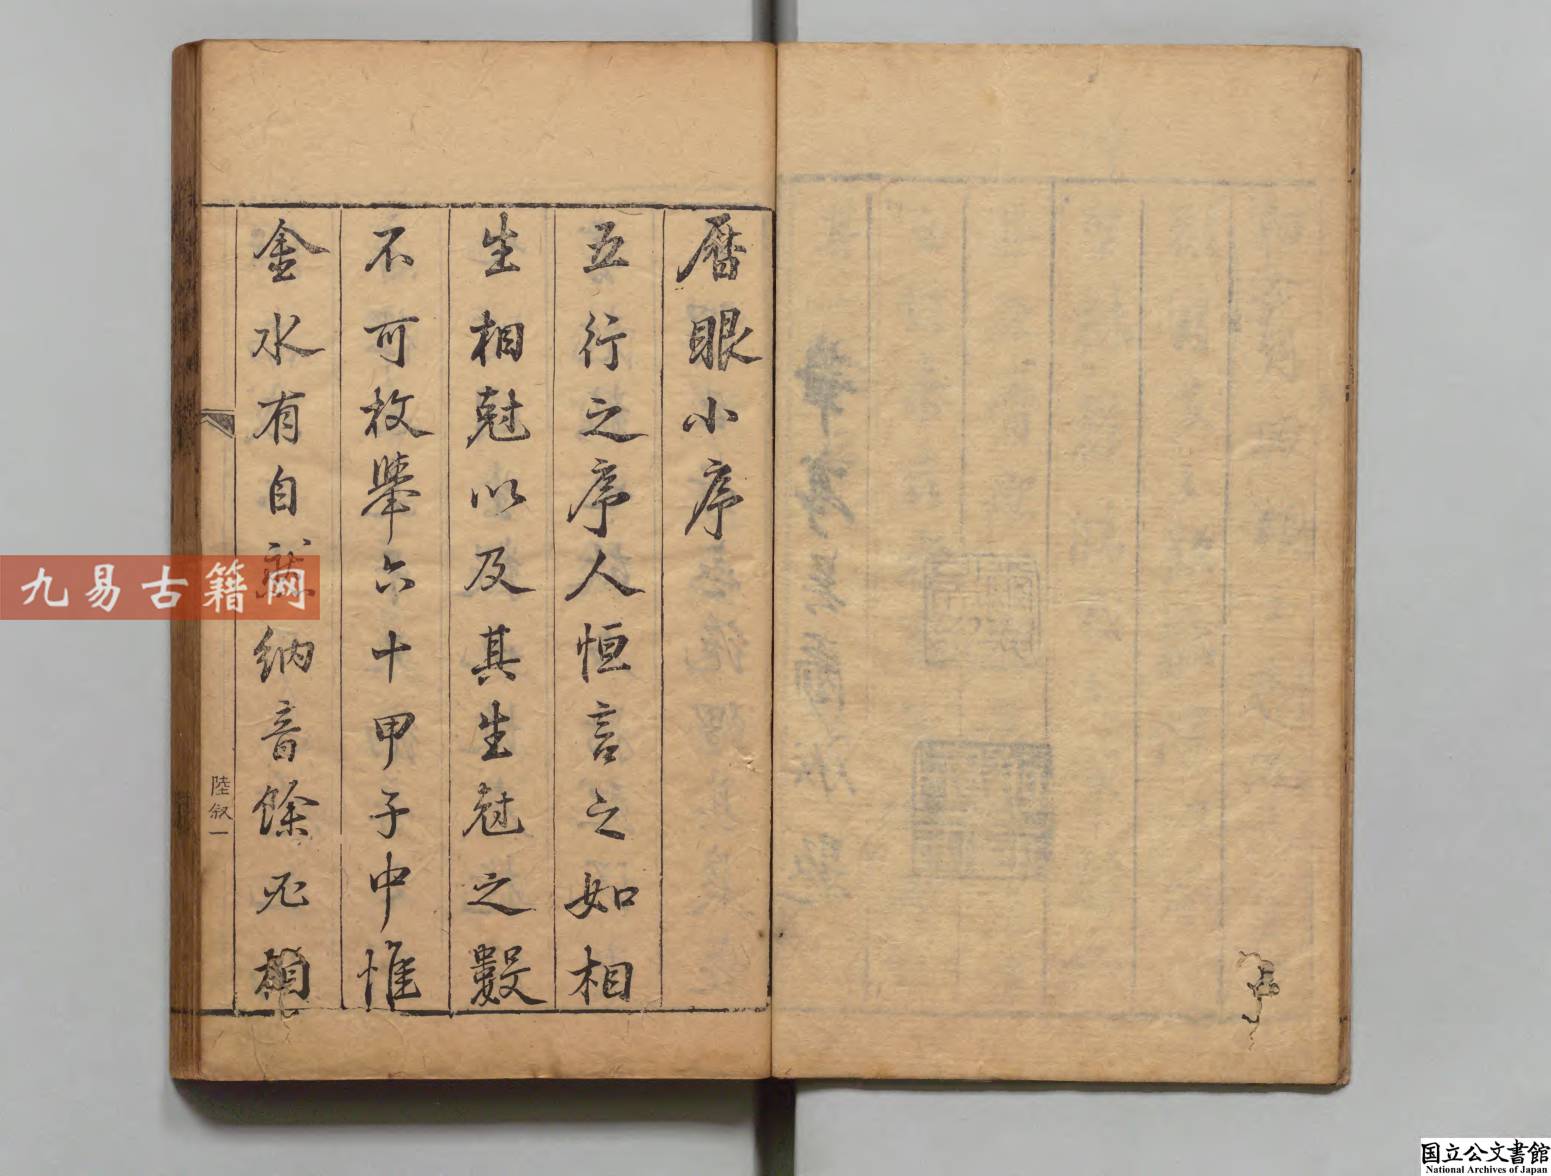 曆眼小序
五行之序人恒言之如相
生相尅以及其生尅之數
不可枚舉六十甲子中惟
金水有自就納音餘不相
陸叙一
九易古籍网
国立公文書館
National Archives of Japan